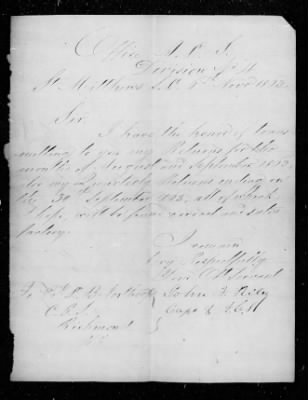 Office A. C. S.
Division
St. Matthews S.C. Nov
Sir,
I have the honor of trans
mitting to you my Returns for the
months of August and September
my Quarterly Returns ending on
the 30th September all of which
I hope, will be found correct and satis
factory.
I remain
Very Respectfully
Your Obt Servant
To L. B. Northrop John
C. G. S. Capt & A. C. S.
Richmond